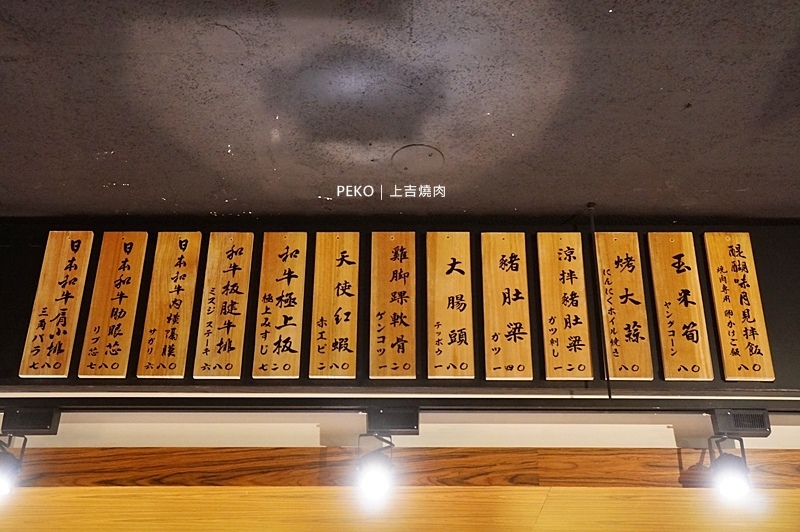 PEKO｜上吉燒肉
日本和牛肩小排
三角バラ
七八〇
日本和牛肋眼芯
リブ芯
七八〇
日本和牛肉橫隔膜
サガリ
六八〇
和牛板腱牛排
ミスジステーキ
六八〇
和牛極上板
極上みすじ
七二〇
天使紅蝦
赤エビ
二〇
雞腳踝軟骨
ゲンコツ
一二〇
大腸頭
テッポウ
一八〇
豬肚梁
ガツ
一四〇
涼拌豬肚梁
ガツ刺し
一二〇
烤大蒜
にんにくホイル焼き
八〇
玉米筍
ヤングコーン
八〇
醍醐味月見拌飯
焼肉専用 卵かけご飯
八〇